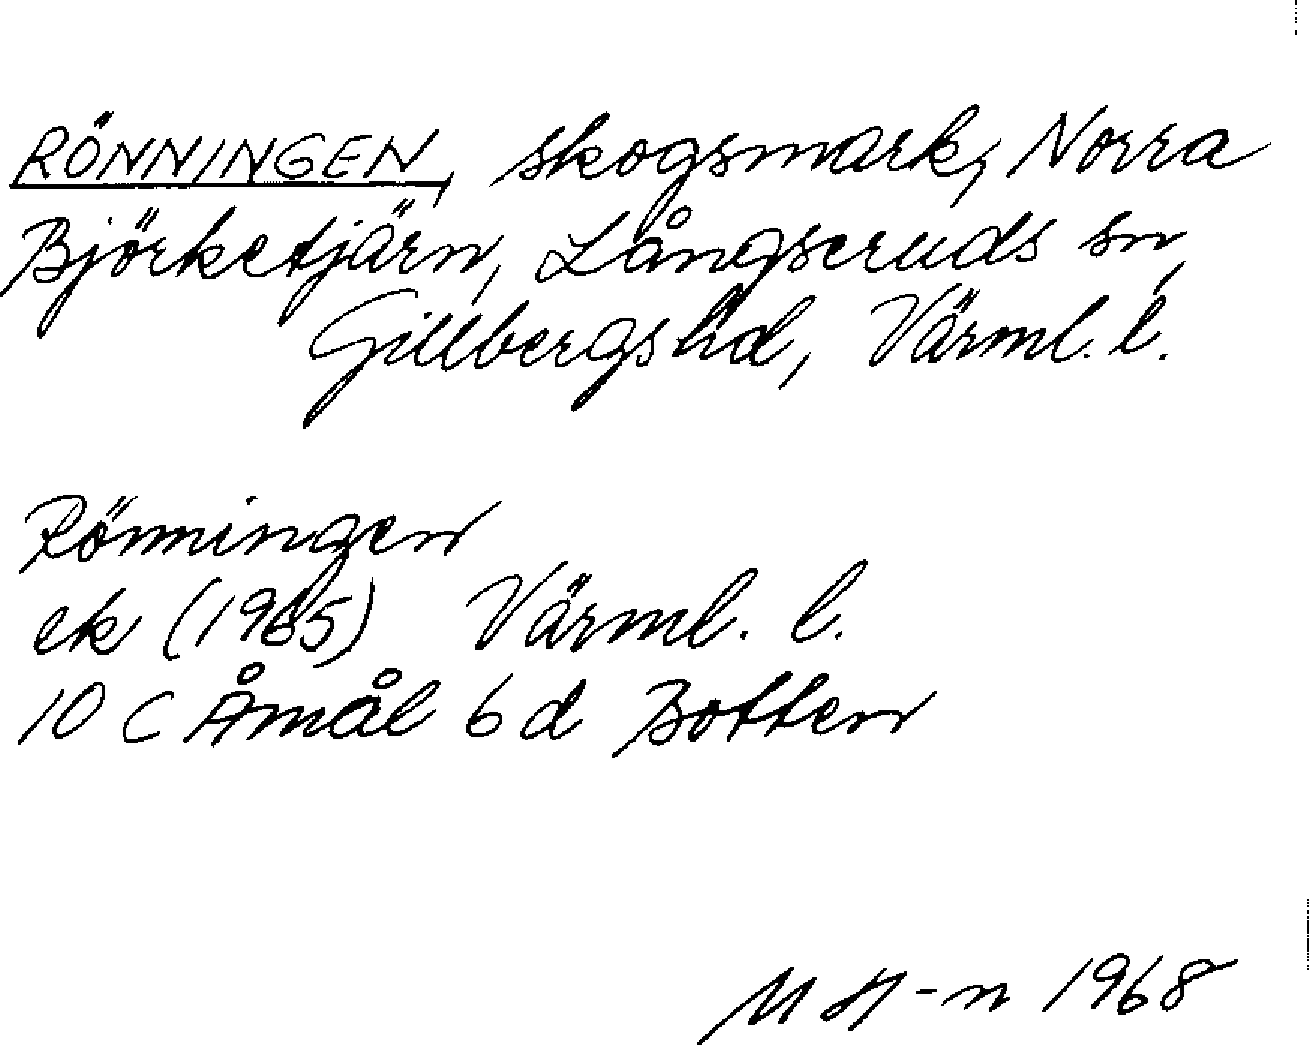 RÖNNINGEN, skogsmark, Norra
Björketjärn, Långseruds sn,
Gillbergs hd, Värml. l.
Rönningen
ek (1965) Värml. l.
10 C Åmål 6 d Botten
M H-n 1968